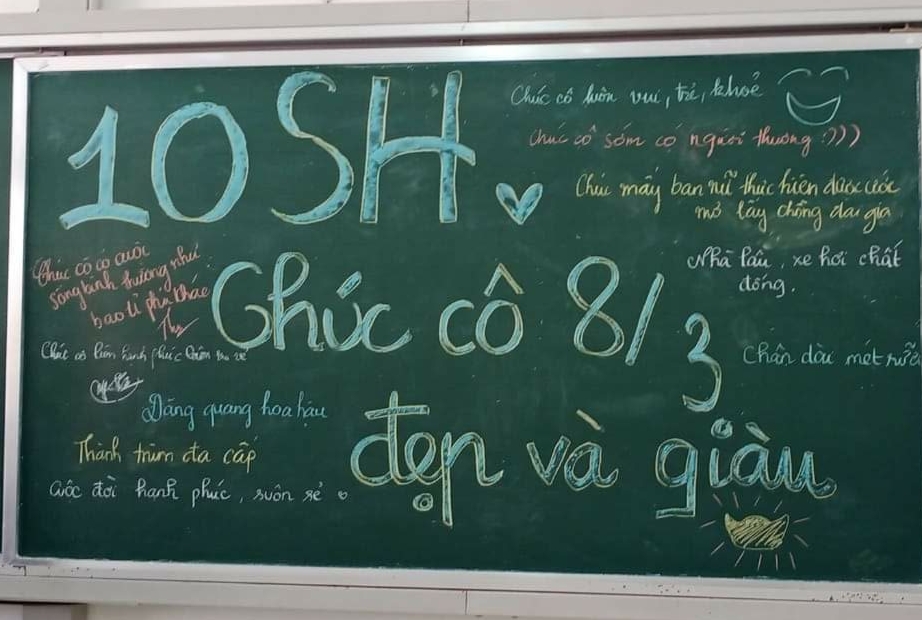 10 SH
Chúc cô luôn vui, trẻ, khoẻ
Chúc cô sớm có người thương :)))
Chúc mấy bạn nữ thực hiện được ước
mơ lấy chồng đại gia
Nhà lầu, xe hơi chất
đống.
Chân dài mét rưỡi
Chúc cô 8/3
đẹp và giàu
Chúc cô có cuộc
sống bình thường như
bao tỉ phú khác
Thy
Chúc cô luôn hạnh phúc
Đăng quang hoa hậu
Thành trùm đa cấp
Cuộc đời hạnh phúc, suôn sẻ